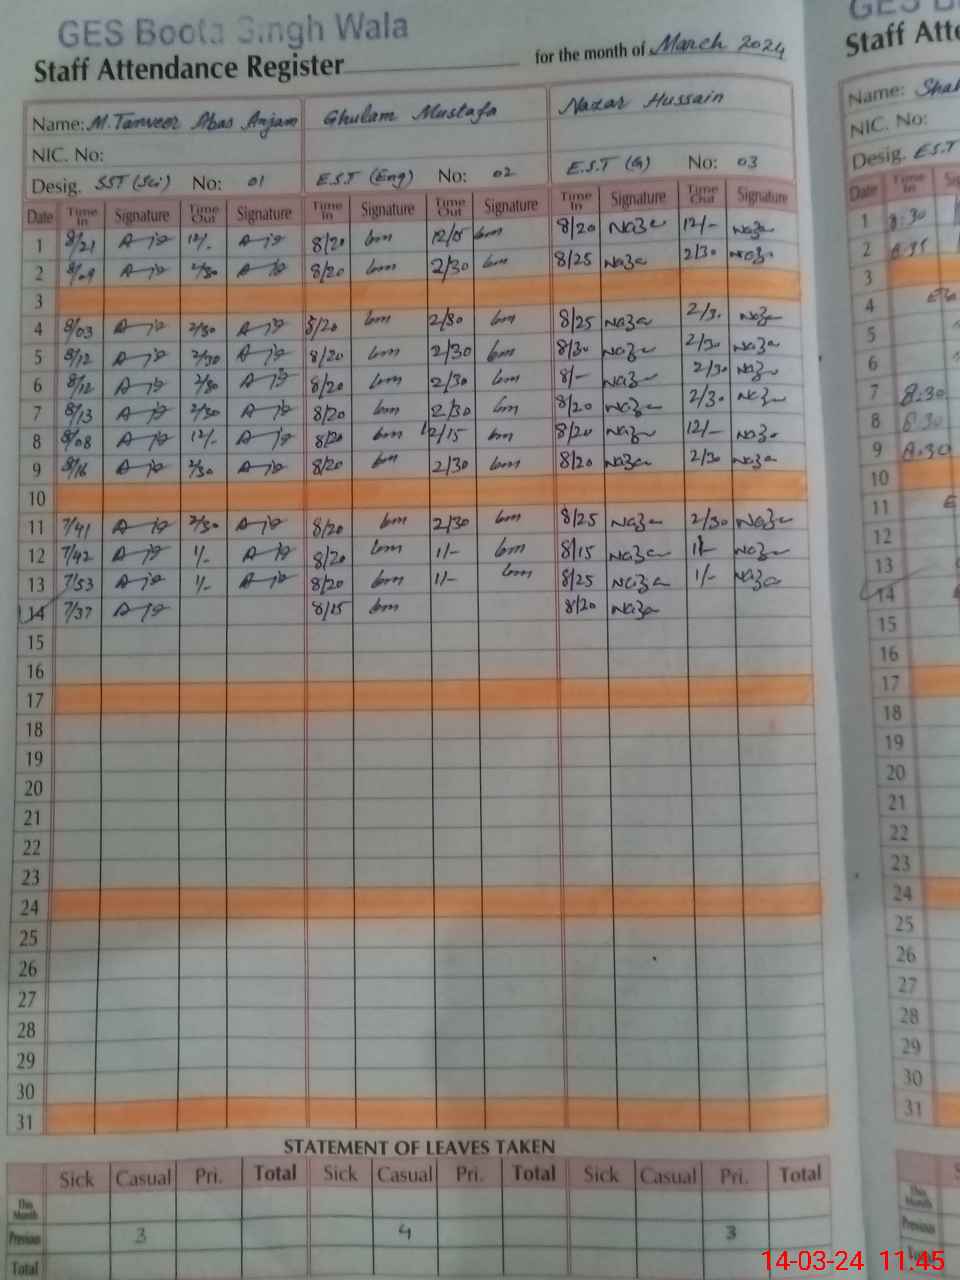 GES Boota Singh Wala
Staff Attendance Register for the month of March 2024
Name: M. Tanveer Abas Anjam Ghulam Mustafa Nazar Hussain
NIC. No:
Desig. SST (Sci) No: 01 E.S.T (Eng) No: 02 E.S.T (G) No: 03
Date Time In Signature Time Out Signature Time In Signature Time Out Signature Time In Signature Time Out Signature
1 8/21 12/- 8/20 12/15 8/20 Naza 12/- Naza
2 8/09 2/30 8/20 2/30 8/25 Naza 2/30 Naza
3
4 8/03 2/30 8/20 2/30 8/25 Naza 2/3. Naza
5 8/12 2/30 8/20 2/30 8/30 Naza 2/30 Naza
6 8/12 2/30 8/20 2/30 8/- Naza 2/30 Naza
7 8/13 2/30 8/20 2/30 8/20 Naza 2/3. Naza
8 8/08 12/- 8/20 12/15 8/20 Naza 12/- Naza
9 8/16 2/30 8/20 2/30 8/20 Naza 2/30 Naza
10
11 7/41 2/30 8/20 2/30 8/25 Naza 2/30 Naza
12 7/42 1/- 8/20 1/- 8/15 Naza 1/- Naza
13 7/53 1/- 8/20 1/- 8/25 Naza 1/- Naza
14 7/37 8/15 8/20 Naza
15
16
17
18
19
20
21
22
23
24
25
26
27
28
29
30
31
STATEMENT OF LEAVES TAKEN
Sick Casual Pri. Total Sick Casual Pri. Total Sick Casual Pri. Total
This Month
Previous 3 4 3
Total
GES
Staff
Name:
NIC. No:
Desig. E.S.T
Date Time In
1 8:30
2 8:35
3
4
5
6
7 8:30
8 8:30
9 8:30
10
11
12
13
14
15
16
17
18
19
20
21
22
23
24
25
26
27
28
29
30
31
This Month
Previous
14-03-24 11:45